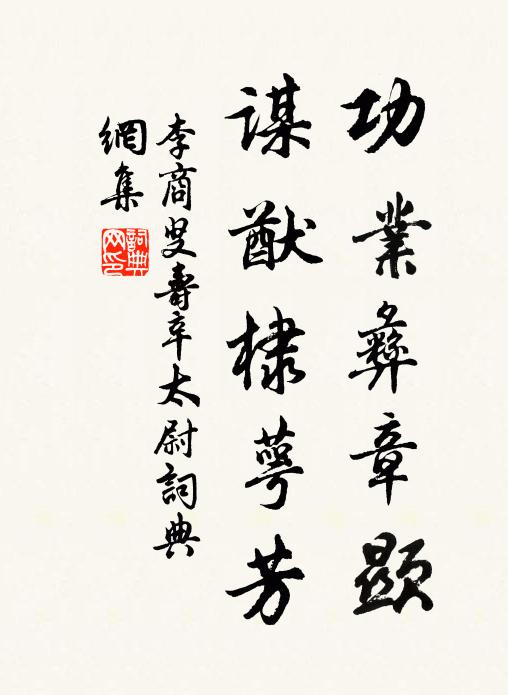 功業彝章顯
謀猷棣萼芳
李商叟壽辛太尉詞典
網集
詞典網印